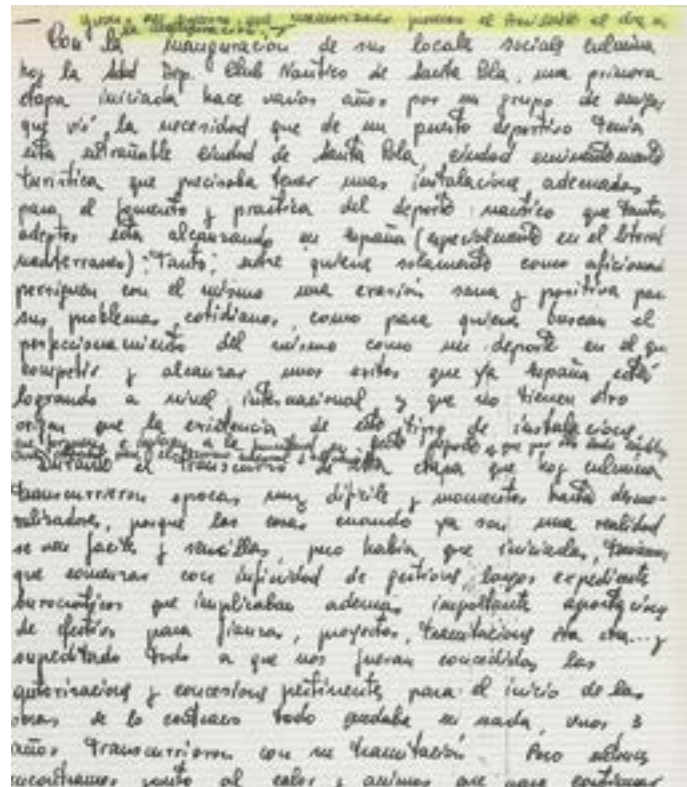 Con la inauguracion de sus locales sociales culmina
hoy la Sdad Dep. Club Naútico de Santa Pola, una primera
etapa iniciada hace varios años por un grupo de amigos
que vió la necesidad que de un puerto deportivo tenia
esta entrañable ciudad de Santa Pola, ciudad eminentemente
turistica que precisaba tener unas instalaciones adecuadas
para el fomento y practica del deporte nautico que tantos
adeptos esta alcanzando en España (especialmente en el litoral
mediterraneo): Tanto; entre quienes solamente como aficionados
persiguen con el mismo una evasión sana y positiva para
sus problemas cotidianos, como para quienes buscan el
perfeccionamiento del mismo como un deporte en el que
competir y alcanzar unos exitos que ya España está
logrando a nivel internacional y que no tienen otro
origen que la existencia de este tipo de instalaciones
Durante el transcurso de esta etapa que hoy culmina
transcurrieron epocas muy dificiles y momentos hasta desmo-
ralizadores, porque las cosas cuando ya son una realidad
se ven faciles y sencillas, pero habia que iniciarlas, teniamos
que comenzar con infinidad de gestiones, largos expedientes
burocraticos que implicaban ademas importantes aportaciones
de efectivo para fianzas, proyectos, tramitaciones etc etc... y
supeditado todo a que nos fueran concedidas las
autorizaciones y concesiones pertinentes para el inicio de las
obras de lo contrario todo quedaba en nada, unos 3
años transcurrieron con su tramitación. Pero
encontramos junto al calor y animos que para continuar